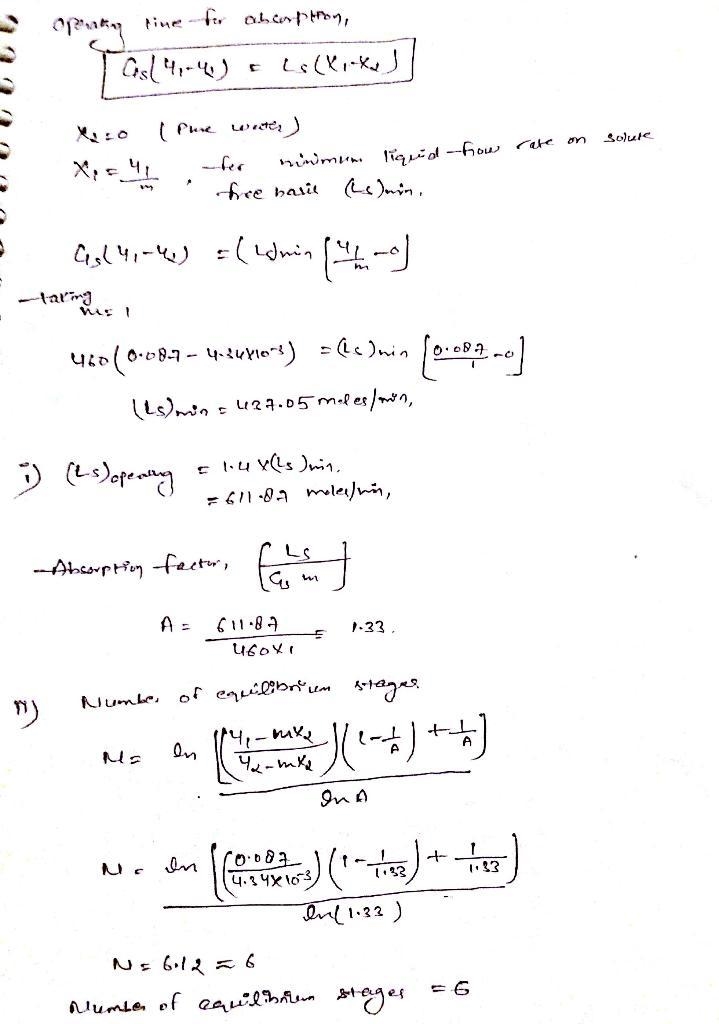 Operating line for absorption,
Gs(Y1-Y2) = Ls(X1-X2)
X2=0 (Pure water)
X1 = Y1/m , for minimum liquid flow rate on solute
free basis (Ls)min,
Gs(Y1-Y2) = (Ls)min [Y1/m -0]
taking
m=1
460(0.087 - 4.34×10-3) = (Ls)min [0.087/1 -0]
(Ls)min = 437.05 moles/min,
i) (Ls)operating = 1.4 ×(Ls)min.
= 611.87 moles/min,
Absorption factor, [Ls/Gs m]
A = 611.87/460×1 = 1.33.
ii) Number of equilibrium stages
N= ln [(Y1-mX2/Y2-mX2)(1-1/A) + 1/A] / ln A
N = ln [(0.087/4.34×10-3)(1-1/1.33) + 1/1.33] / ln(1.33)
N = 6.12 ≈ 6
Number of equilibrium stages = 6